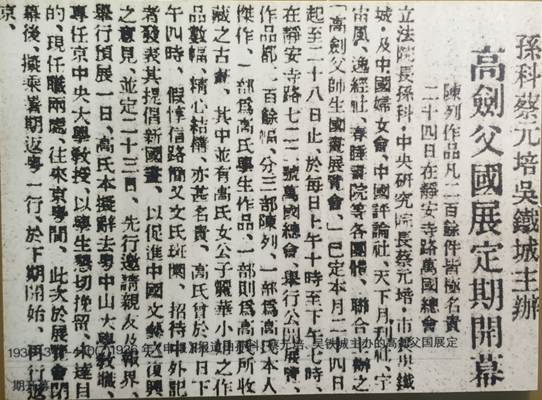 孫科蔡元培吳鐵城主辦
高劍父國展定期開幕
陳列作品凡二百餘件皆極名貴
二十四日在靜安寺路萬國總會
立法院長孫科·中央研究院長蔡元培·市長吳鐵
城·及中國婦女會·中國評論社·天下月刊社·宇
宙風·逸經社·春睡畫院等各團體·聯合主辦之
「高劍父師生國畫展覽會」·已定本月二十四日
起至二十八日止·於每日上午十時至下午七時·
在靜安寺路七二二號萬國總會·舉行公開展覽·
作品都二百餘幅·分三部陳列·一部爲高氏本人
傑作·一部爲高氏學生作品·一部則爲高氏所收
藏之古畫·其中並有高氏女公子麗華小姐之作
品數幅·精心結構·亦甚名貴·高氏曾於 日下
午四時·假愽信路簡又文氏斑園·招待中外記
者發表其提倡新國畫·以促進中國文藝之復興
之意見·並定二十三日·先行邀請親友及報界·
舉行預展一日·高氏本擬辭去粤中山大學敎職·
專任京中央大學敎授·以學生懇切挽留·未達目
的·現任職兩處·往來京粤間·此次於展覽會閉
幕後·擬乘暑期返粤一行·於下期開始·再行返
京·
1936 年《申报》报道由孙科、蔡元培、吴铁城主办的高剑父国展定
期开幕